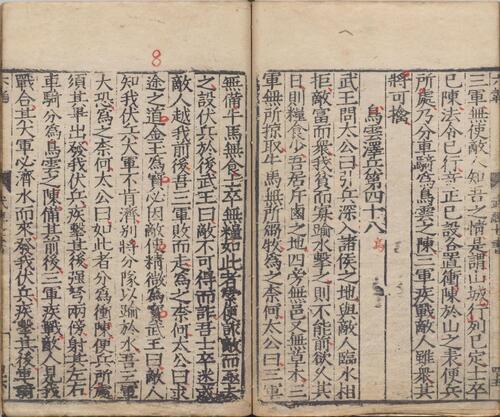 三軍無使敵人知吾之情是謂山城行列已定士卒
已陳法令已行奇正已設各置衝陳於山之表便兵
所處乃分車騎爲烏雲之陳三軍疾戰敵人雖衆其
將可擒
烏雲澤兵第四十八
烏
武王問太公曰引兵深入諸侯之地與敵人臨水相
拒敵富而衆我貧而寡踰水擊之則不能前欲久其
日則糧食少吾居斥鹵之地四旁無邑又無草木三
軍無所掠取牛馬無所芻牧爲之奈何太公曰三軍
8
無備牛馬無食士卒無糧如此者索便詐敵而亟去
之設伏兵於後武王曰敵不可得而詐吾士卒迷惑
敵人越我前後吾三軍敗而走爲之奈何太公曰求
途之道金玉爲寶必因敵使精微爲寶武王曰敵人
知我伏兵大軍不肯濟別將分隊以踰於水吾三軍
大恐爲之奈何太公曰如此者分爲衝陳便兵所處
須其畢出發我伏兵疾擊其後強弩兩傍射其左右
車騎分爲烏雲之陳備其前後三軍疾戰敵人見我
戰合其大軍必濟水而來發我伏兵疾擊其後車騎